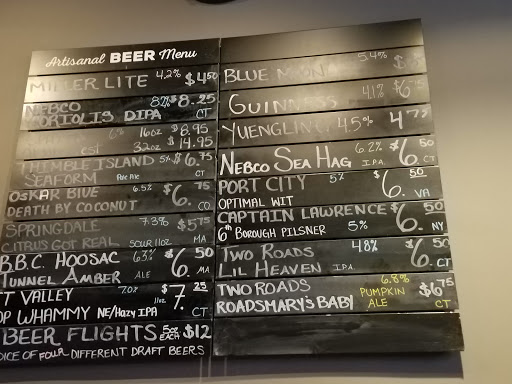 Artisanal BEER Menu
MILLER LITE 4.2% $4.50
NEBCO 8% $8.25
CORIOLIS DIPA CT
6% 16oz $8.95
est 32oz $14.95
THIMBLE ISLAND 5% $6.75
SEAFORM Pale Ale CT
OSKAR BLUE 6.5% $6.75
DEATH BY COCONUT CO
SPRINGDALE 7.3% $5.75
CITRUS GOT REAL SOUR 11oz MA
B.B.C. HOOSAC 6.3% $6.50
TUNNEL AMBER ALE MA
T VALLEY 7.0% $7.25
OP WHAMMY NE/Hazy IPA 11oz CT
BEER FLIGHTS 5oz EACH $12
OICE OF FOUR DIFFERENT DRAFT BEERS
BLUE MOON 5.4%
GUINNESS 4.1% $6.75
YUENGLING 4.5% 4.75
NEBCO SEA HAG 6.2% I.P.A. $6.50 CT
PORT CITY 5% $6.50
OPTIMAL WIT VA
CAPTAIN LAWRENCE $6.50
6th BOROUGH PILSNER 5% NY
TWO ROADS 4.8% $6.50
LIL HEAVEN IPA CT
TWO ROADS 6.8% $6.75
ROADSMARY'S BABY PUMPKIN ALE CT